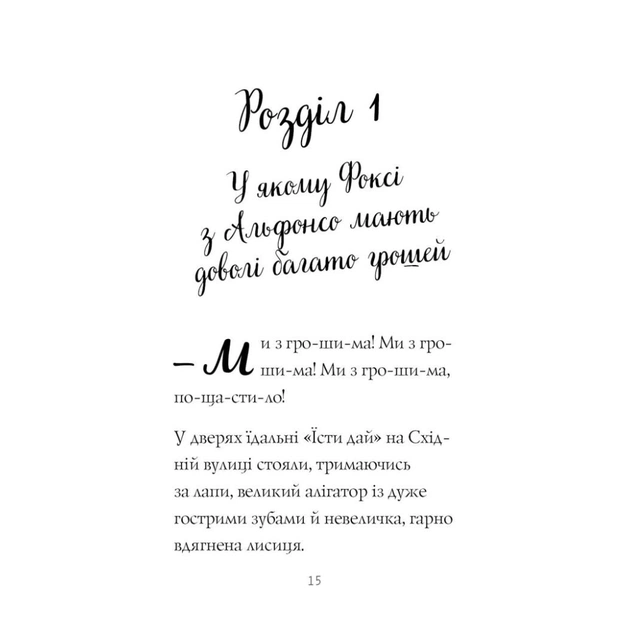 Розділ 1
У якому Фоксі
з Альфонсо мають
доволі багато грошей
– Ми з гро-ши-ма! Ми з гро-
ши-ма! Ми з гро-ши-ма,
по-ща-сти-ло!
У дверях їдальні «Їсти дай» на Схід-
ній вулиці стояли, тримаючись
за лапи, великий алігатор із дуже
гострими зубами й невеличка, гарно
вдягнена лисиця.
15